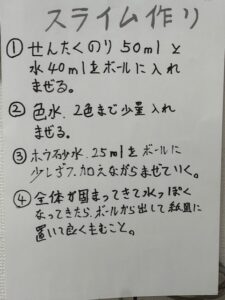 スライム作り
① せんたくのり 50ml と
水 40ml をボールに入れ
まぜる。
② 色水、2色まで少量入れ
まぜる。
③ ホウ砂水、25ml をボールに
少しずつ、加えながらまぜていく。
④ 全体が固まってきて水っぽく
なってきたら、ボールから出して紙皿に
置いて良くもむこと。